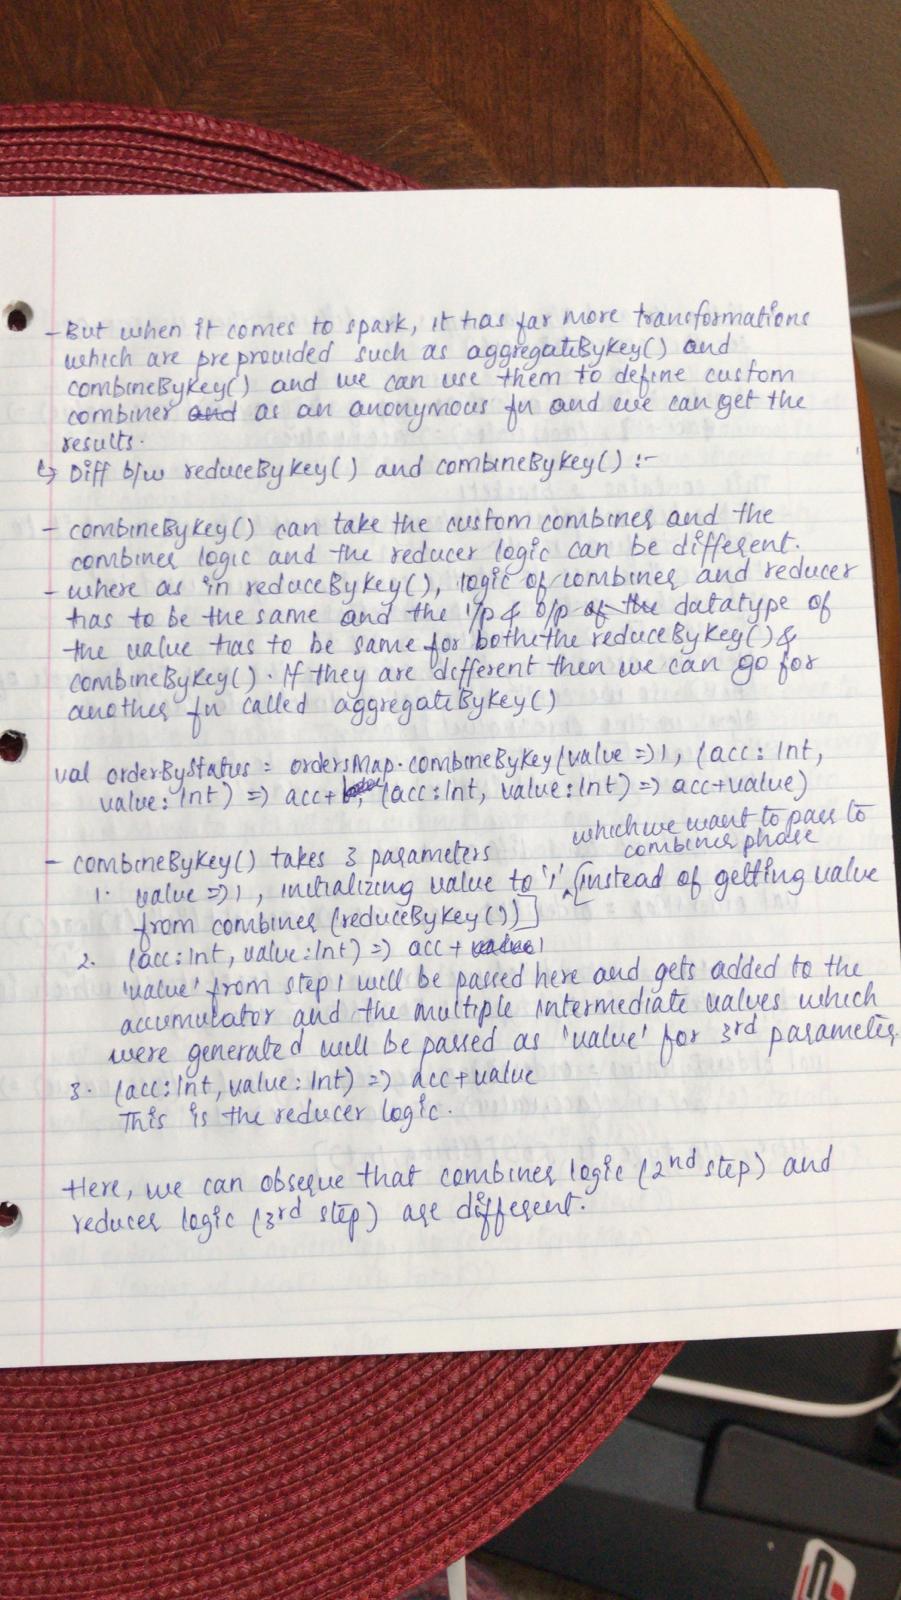 - But when it comes to spark, it has far more transformations
which are preprovided such as aggregateByKey() and
combineByKey() and we can use them to define custom
combiner and as an anonymous fn and we can get the
results.
↳ Diff b/w reduceByKey() and combineByKey() :-
- combineByKey() can take the custom combiner and the
combiner logic and the reducer logic can be different.
- where as in reduceByKey(), logic of combiner and reducer
has to be the same and the i/p & o/p of the datatype of
the value has to be same for bothethe reduceByKey() &
combineByKey(). If they are different then we can go for
another fn called aggregateByKey()
val orderByStatus = ordersMap.combineByKey(value => 1, (acc: Int,
value: Int) => acc+ , (acc: Int, value: Int) => acc+value)
- combineByKey() takes 3 parameters
which we want to pass to
combiner phase
1. value => 1, initializing value to '1' [instead of getting value
from combiner (reduceByKey())]
2. (acc: Int, value: Int) => acc + value 1
'value' from step 1 will be passed here and gets added to the
accumulator and the multiple intermediate values which
were generated will be passed as 'value' for 3rd parameter
3. (acc: Int, value: Int) => acc+value
This is the reducer logic.
Here, we can observe that combiner logic (2nd step) and
reducer logic (3rd step) are different.